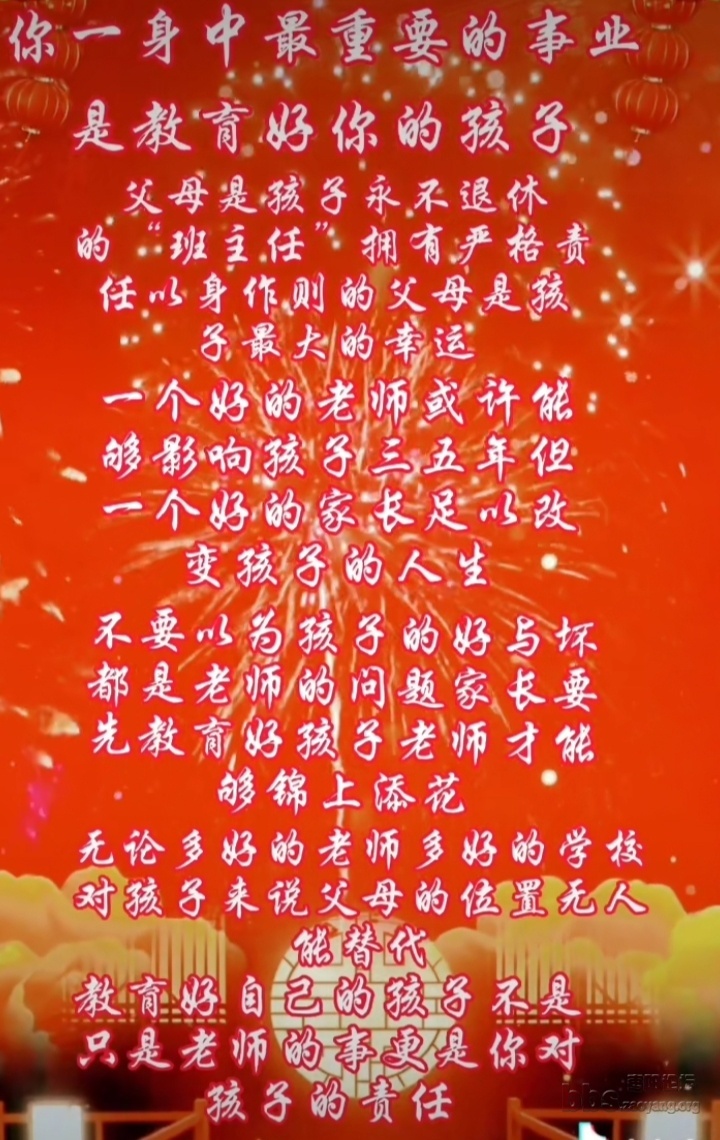 你一身中最重要的事业
是教育好你的孩子
父母是孩子永不退休
的“班主任”拥有严格责
任以身作则的父母是孩
子最大的幸运
一个好的老师或许能
够影响孩子三五年但
一个好的家长足以改
变孩子的人生
不要以为孩子的好与坏
都是老师的问题家长要
先教育好孩子老师才能
够锦上添花
无论多好的老师多好的学校
对孩子来说父母的位置无人
能替代
教育好自己的孩子不是
只是老师的事更是你对
孩子的责任